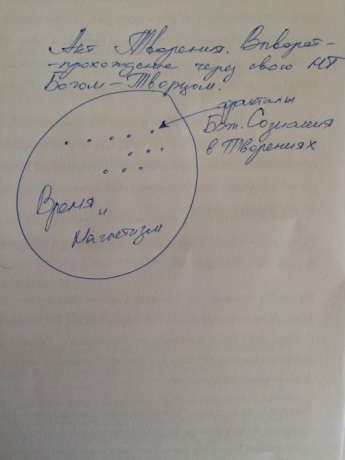 Акт Творения. Выворот-
-прохождение через свою НТ
Богом-Творцом.
фракталы
Бож. Сознания
в Творениях
Время и
Магнетизм